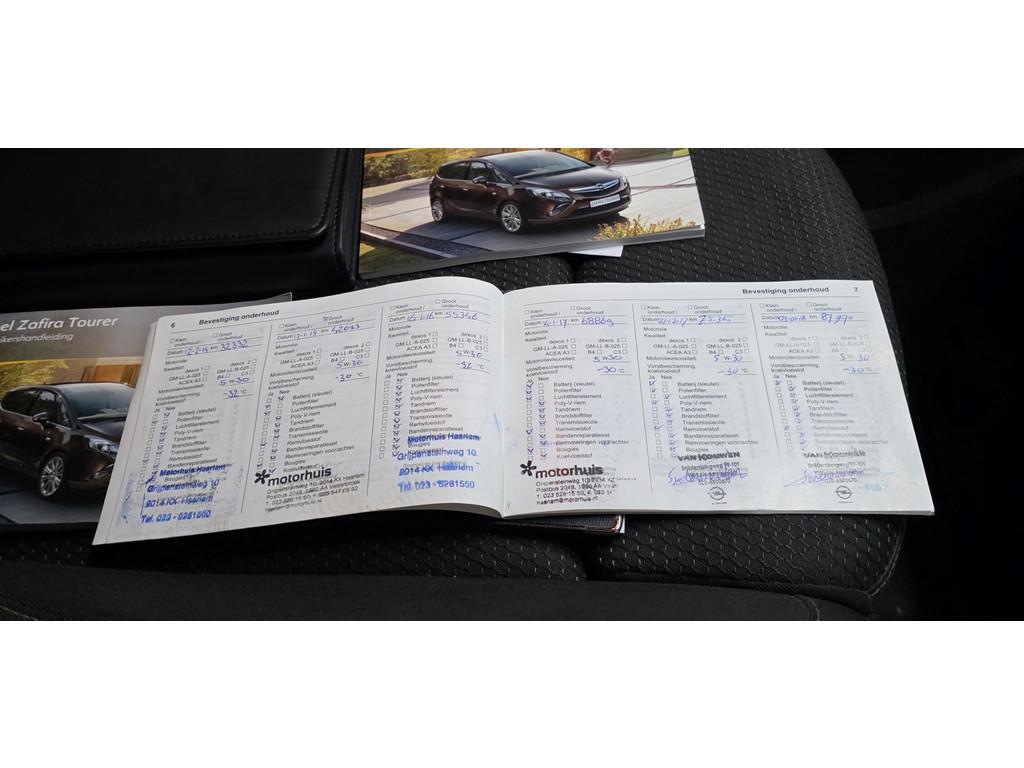 ZAFIRA TOURER
el Zafira Tourer
ikershandleiding
6 Bevestiging onderhoud
Klein onderhoud / Groot onderhoud
Datum 12-2-13 km 32332
Motorolie
Kwaliteit
dexos 1 dexos 2
GM-LL-A-025 GM-LL-B-025
ACEA A3 B4 C3
Motorolieviscositeit: 5W30
Vorstbescherming, koelvloeistof -32 °C
Ja Nee
Batterij (sleutel)
Pollenfilter
Luchtfilterelement
Poly-V-riem
Tandriem
Brandstoffilter
Transmissieolie
Remvloeistof
Bandenreparatieset
Motorhuis Haarlem
Grijpensteinweg 10
2014 KX Haarlem
Tel. 023 - 5281550
Klein onderhoud / Groot onderhoud
Motorolie
Kwaliteit
dexos 1 dexos 2
GM-LL-A-025 GM-LL-B-025
ACEA A3 B4 C3
Motorolieviscositeit: 5W30
Vorstbescherming, koelvloeistof -30 °C
Ja Nee
Batterij (sleutel)
Pollenfilter
Luchtfilterelement
Poly-V-riem
Tandriem
Brandstoffilter
Transmissieolie
Remvloeistof
Bandenreparatieset
Bougies
motorhuis
Grijpensteinweg 10, 2014 KX Haarlem
Postbus 2048, 1990 AA Velserbroek
haarlem@motorhuis.nl
Klein onderhoud / Groot onderhoud
Datum 15-1-16 km 55346
Motorolie
Kwaliteit
dexos 1 dexos 2
GM-LL-A-025 GM-LL-B-025
ACEA A3 B4 C3
Motorolieviscositeit: 5W30
Vorstbescherming, koelvloeistof -32 °C
Ja Nee
Batterij (sleutel)
Pollenfilter
Luchtfilterelement
Poly-V-riem
Tandriem
Brandstoffilter
Transmissieolie
Remvloeistof
Bandenreparatieset
Motorhuis Haarlem
Grijpensteinweg 10
2014 KX Haarlem
Tel. 023 - 5281550
Bevestiging onderhoud 7
Klein onderhoud / Groot onderhoud
km 68869
Motorolie
Kwaliteit
dexos 1 dexos 2
GM-LL-A-025 GM-LL-B-025
ACEA A3 B4 C3
Motorolieviscositeit: 5W30
Vorstbescherming, koelvloeistof -30 °C
Ja Nee
Batterij (sleutel)
Pollenfilter
Luchtfilterelement
Poly-V-riem
Tandriem
Brandstoffilter
Transmissieolie
Remvloeistof
Bandenreparatieset
Remvoeringen voor/achter
Bougies
Koelvloeistof
motorhuis
Grijpensteinweg 10, 2014 KX Haarlem
haarlem@motorhuis.nl
Klein onderhoud / Groot onderhoud
Motorolie
Kwaliteit
dexos 1 dexos 2
GM-LL-A-025 GM-LL-B-025
ACEA A3 B4 C3
Motorolieviscositeit: 5W30
Vorstbescherming, koelvloeistof -30 °C
Ja Nee
Batterij (sleutel)
Pollenfilter
Luchtfilterelement
Poly-V-riem
Tandriem
Brandstoffilter
Transmissieolie
Remvloeistof
Bandenreparatieset
Remvoeringen voor/achter
Bougies
VAN KOUWEN
Klein onderhoud / Groot onderhoud
km 87990
Motorolie
Kwaliteit
dexos 1 dexos 2
GM-LL-A-025 GM-LL-B-025
ACEA A3 B4 C3
Motorolieviscositeit: 5W30
Vorstbescherming, koelvloeistof -30 °C
Ja Nee
Batterij (sleutel)
Pollenfilter
Luchtfilterelement
Poly-V-riem
Tandriem
Brandstoffilter
Transmissieolie
Remvloeistof
Bandenreparatieset
Remvoeringen voor/achter
Bougies
VAN KOUWEN